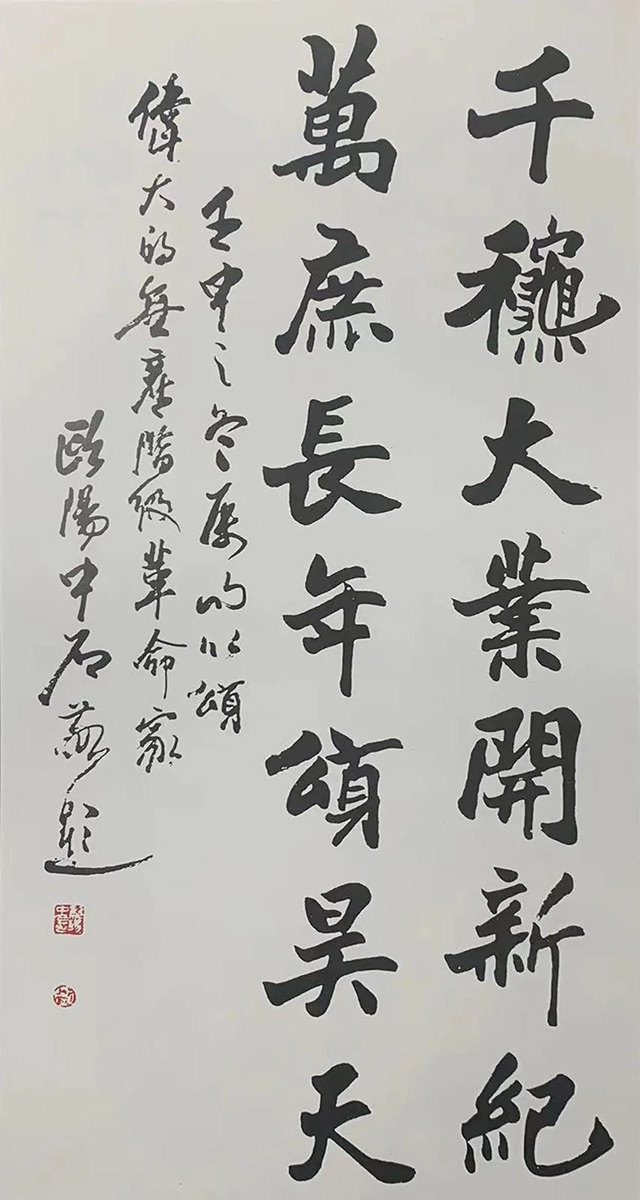 千龝大業開新紀
萬庶長年頌昊天
壬申之冬屬句以頌
偉大的無產階級革命家
歐陽中石敬題